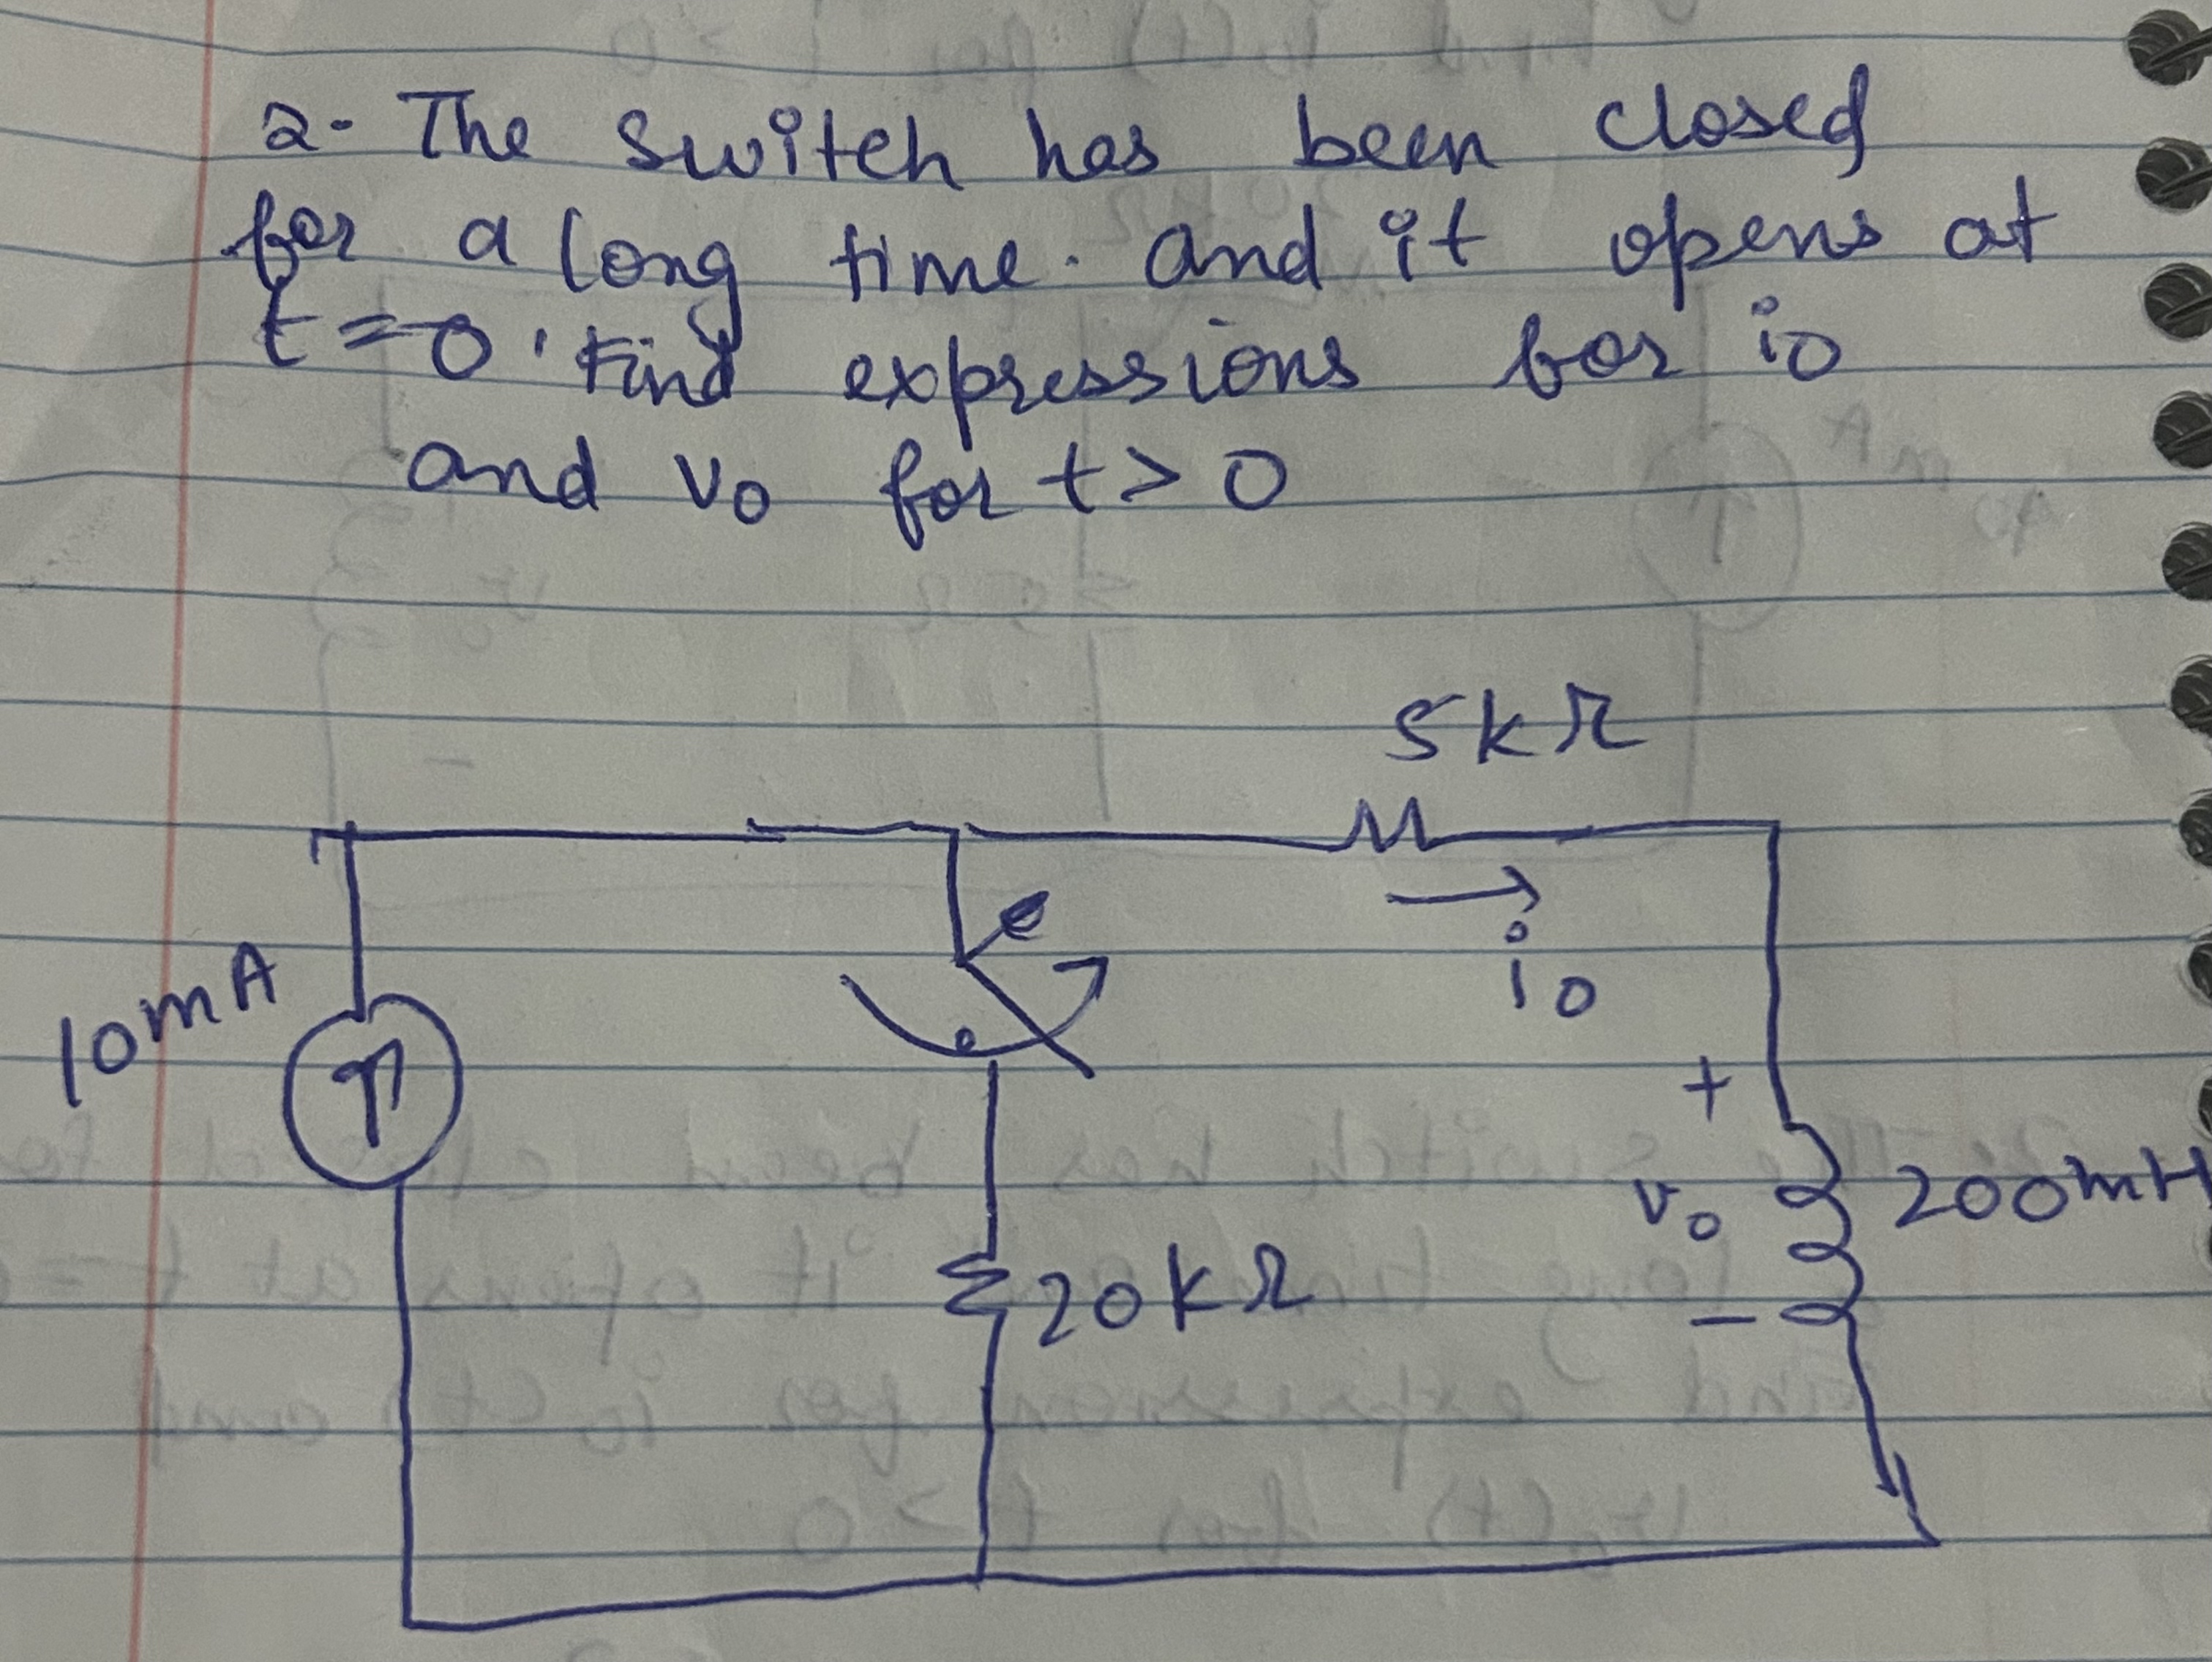 2- The switch has been closed
for a long time. and it opens at
t = 0. Find expressions for i0
and v0 for t > 0
5kΩ
10mA
i0
+
v0
200mH
20kΩ
-